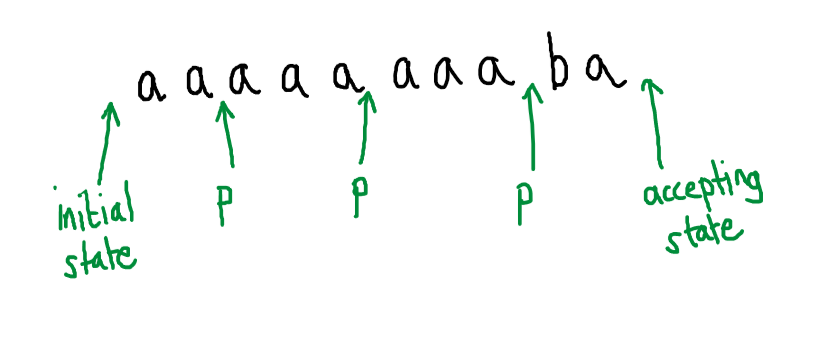 a a a a a a a a b a
initial state
P
P
P
accepting state